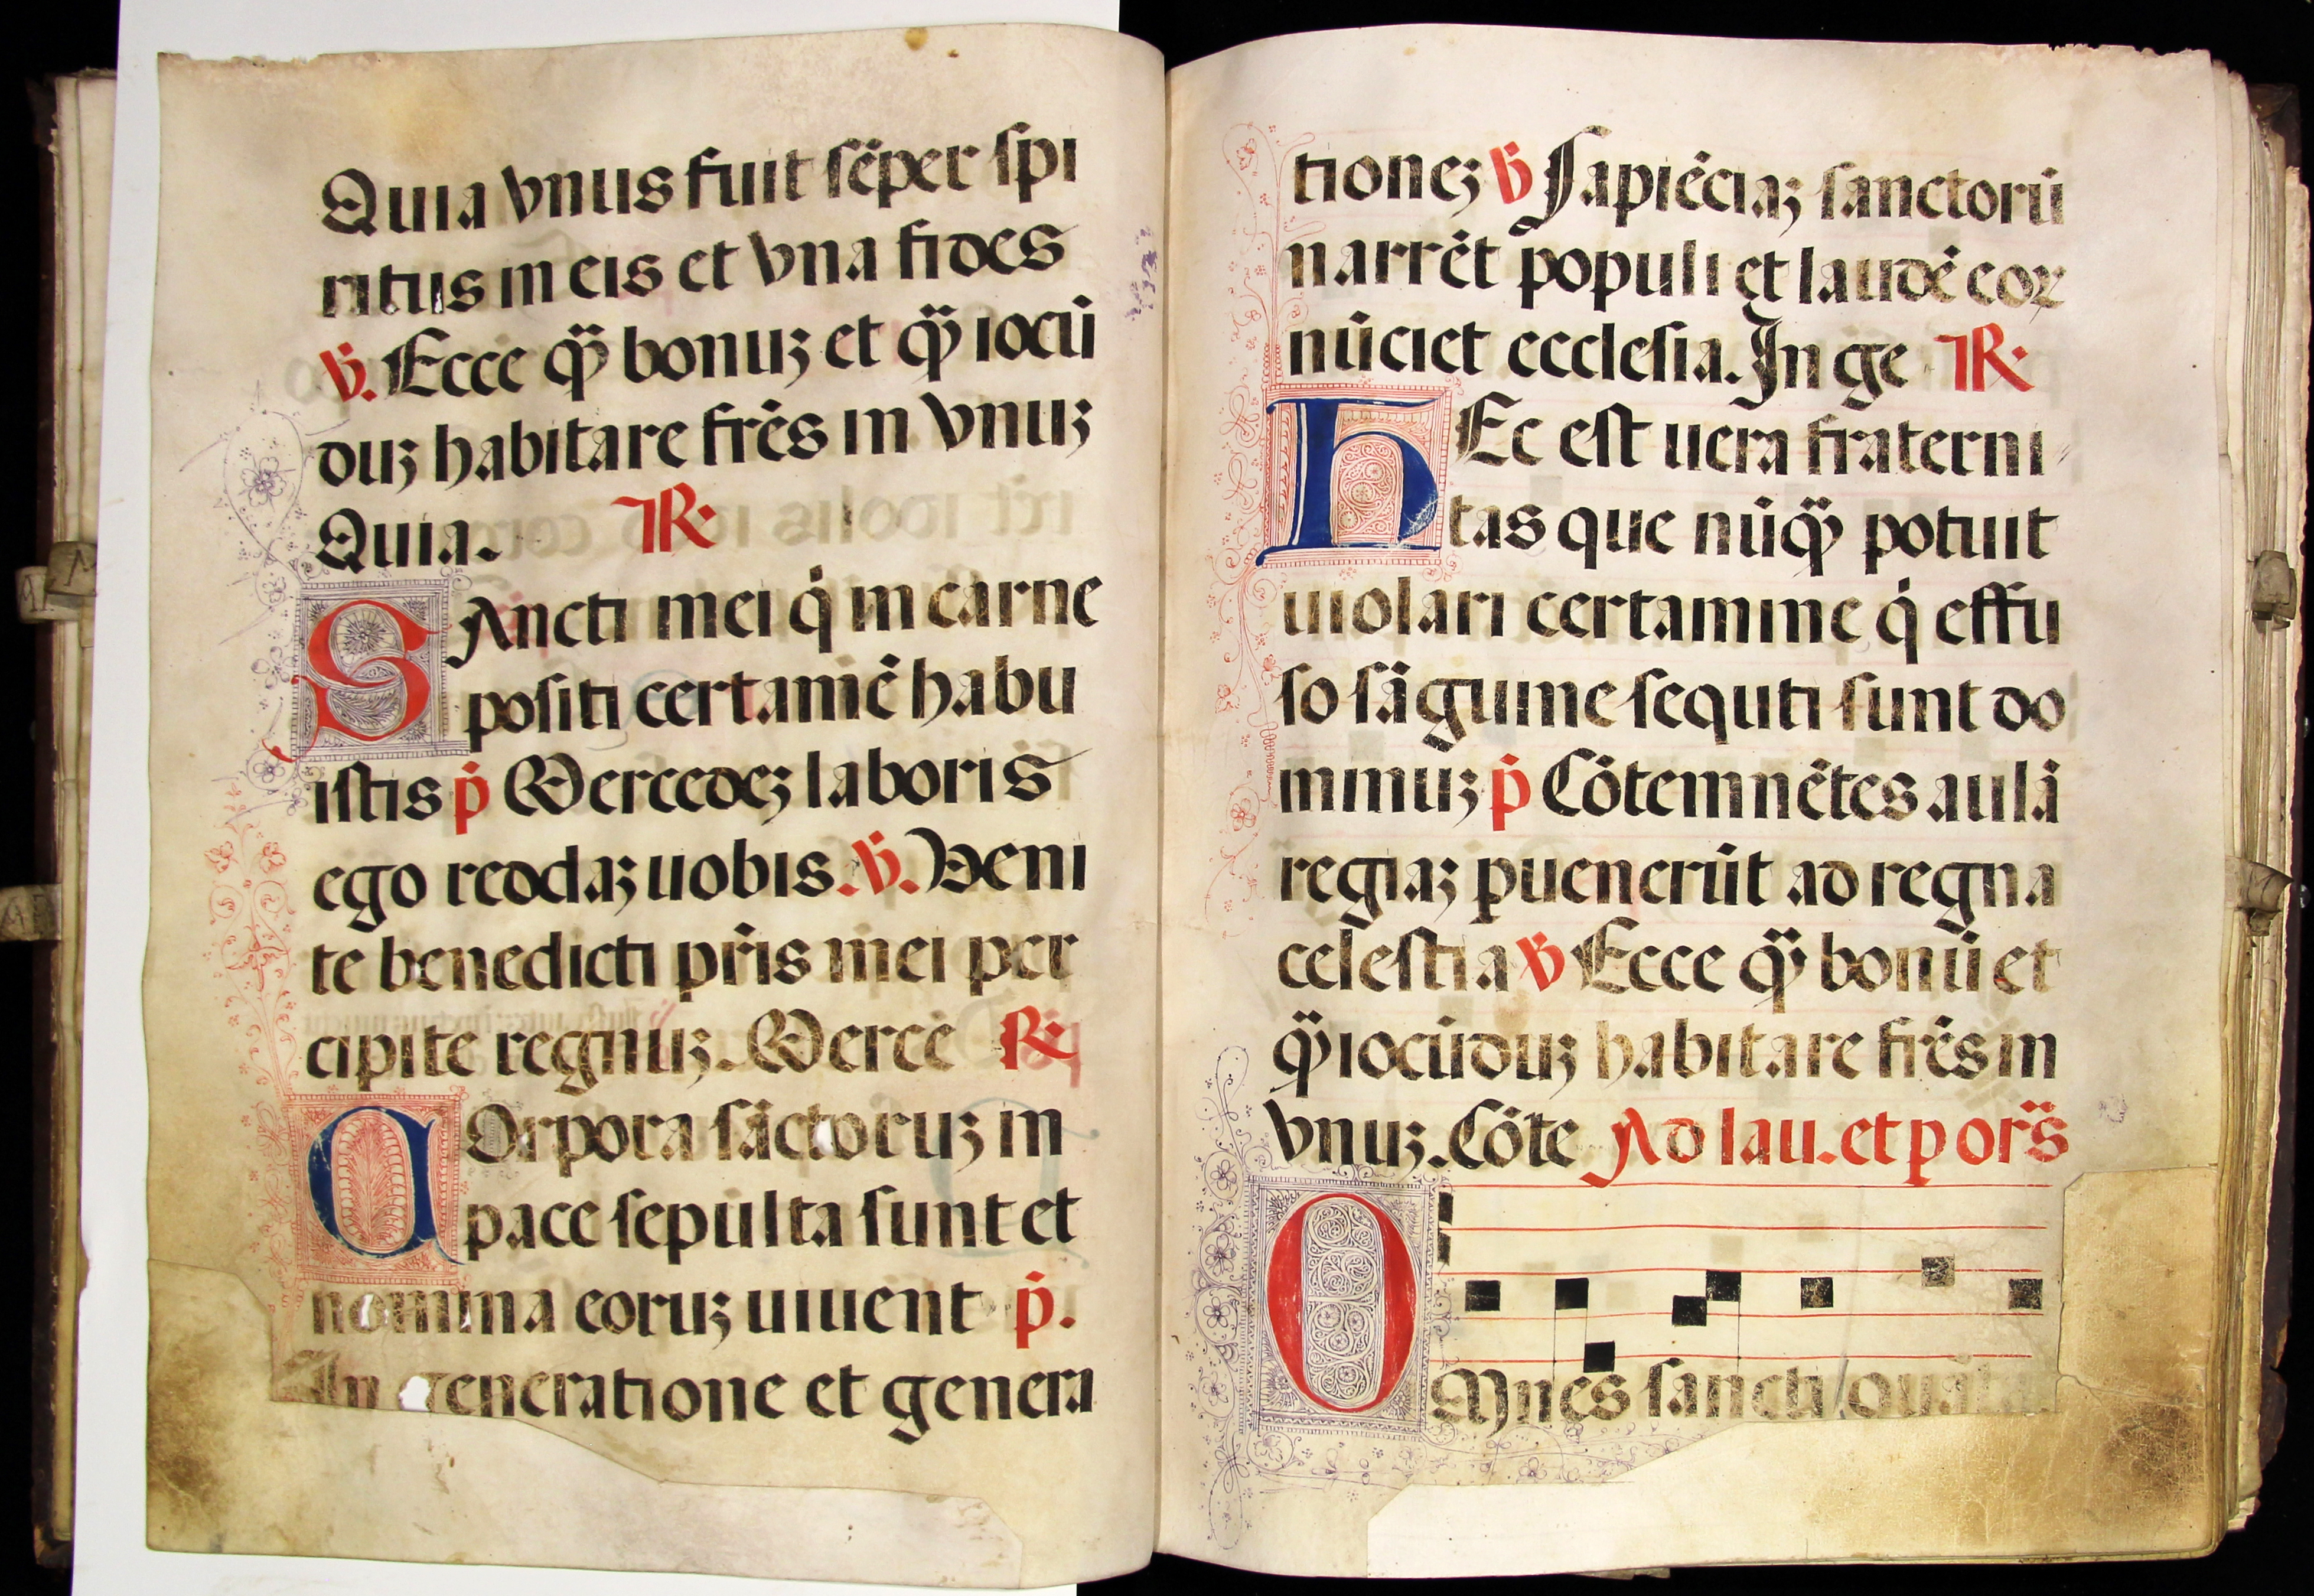 Quia vnus fuit sēper spi
ritus in eis et vna fides
℣. Ecce q̄ bonuꝫ et q̄ iocū
duꝫ habitare frēs in vnuꝫ
Quia. ℟.
SAncti mei q̇ in carne
positi certamē habu
istis ṗ Mercedeꝫ laboris
ego reddaꝫ uobis. ℣. Veni
te benedicti pr̄is mei per
cipite regnuꝫ. Mercē ℟
COrpora sāctoruꝫ in
pace sepulta sunt et
nomina eoruꝫ uiuent ṗ.
In generatione et genera
tioneꝫ ℣ Sapiēciaꝫ sanctorū
narrēt populi et laudē eoꝝ
nūciet ecclesia. In gē ℟.
hEc est uera fraterni
tas que nūq̄ potuit
uiolari certamine q̇ effu
so sāguine sequti sunt do
minuꝫ ṗ Cōtemnētes aulā
regiaꝫ ꝑuenerūt ad regna
celestia ℣ Ecce q̄ bonū et
q̄ iocūduꝫ habitare frēs in
vnuꝫ. Cōte Ad lau. et p or̄s
OMnes sancti